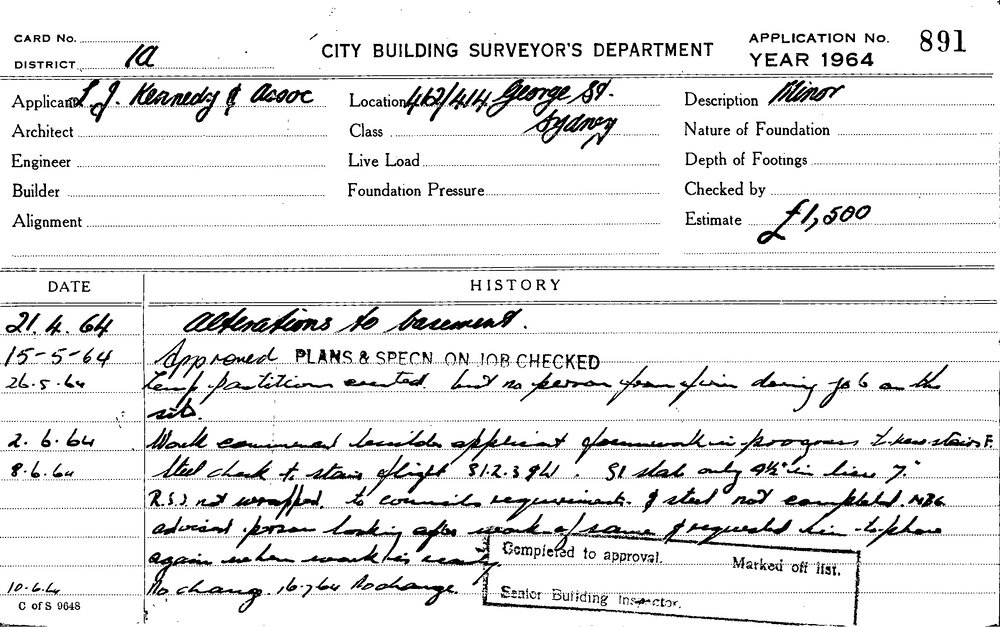 CARD No.
DISTRICT 1a
CITY BUILDING SURVEYOR'S DEPARTMENT
APPLICATION No. 891
YEAR 1964
Applicant L. J. Kennedy & Assoc
Location 412/414 George St.
Sydney
Description Minor
Architect
Class
Nature of Foundation
Engineer
Live Load
Depth of Footings
Builder
Foundation Pressure
Checked by
Alignment
Estimate £1,500
DATE
HISTORY
21.4.64 Alterations to basement.
15-5-64 Approved PLANS & SPECN ON JOB CHECKED
26.5.64 Temp. partition erected, but no person from firm doing job on the
site.
2.6.64 Work commenced builder applicant formwork in progress stairs F.
8.6.64 Steel check to stair flight S1.2.3 & 4. S1 slab only 4½" in lieu 7"
R.S.J. not wrapped. to councils requirements. & steel not completed.
advised person looking after work of same & requested him to phone
again when work is ready
10.6.64 No change. 16.7.64 No change.
Completed to approval. Marked off list.
Senior Building Inspector.
C of S 9648